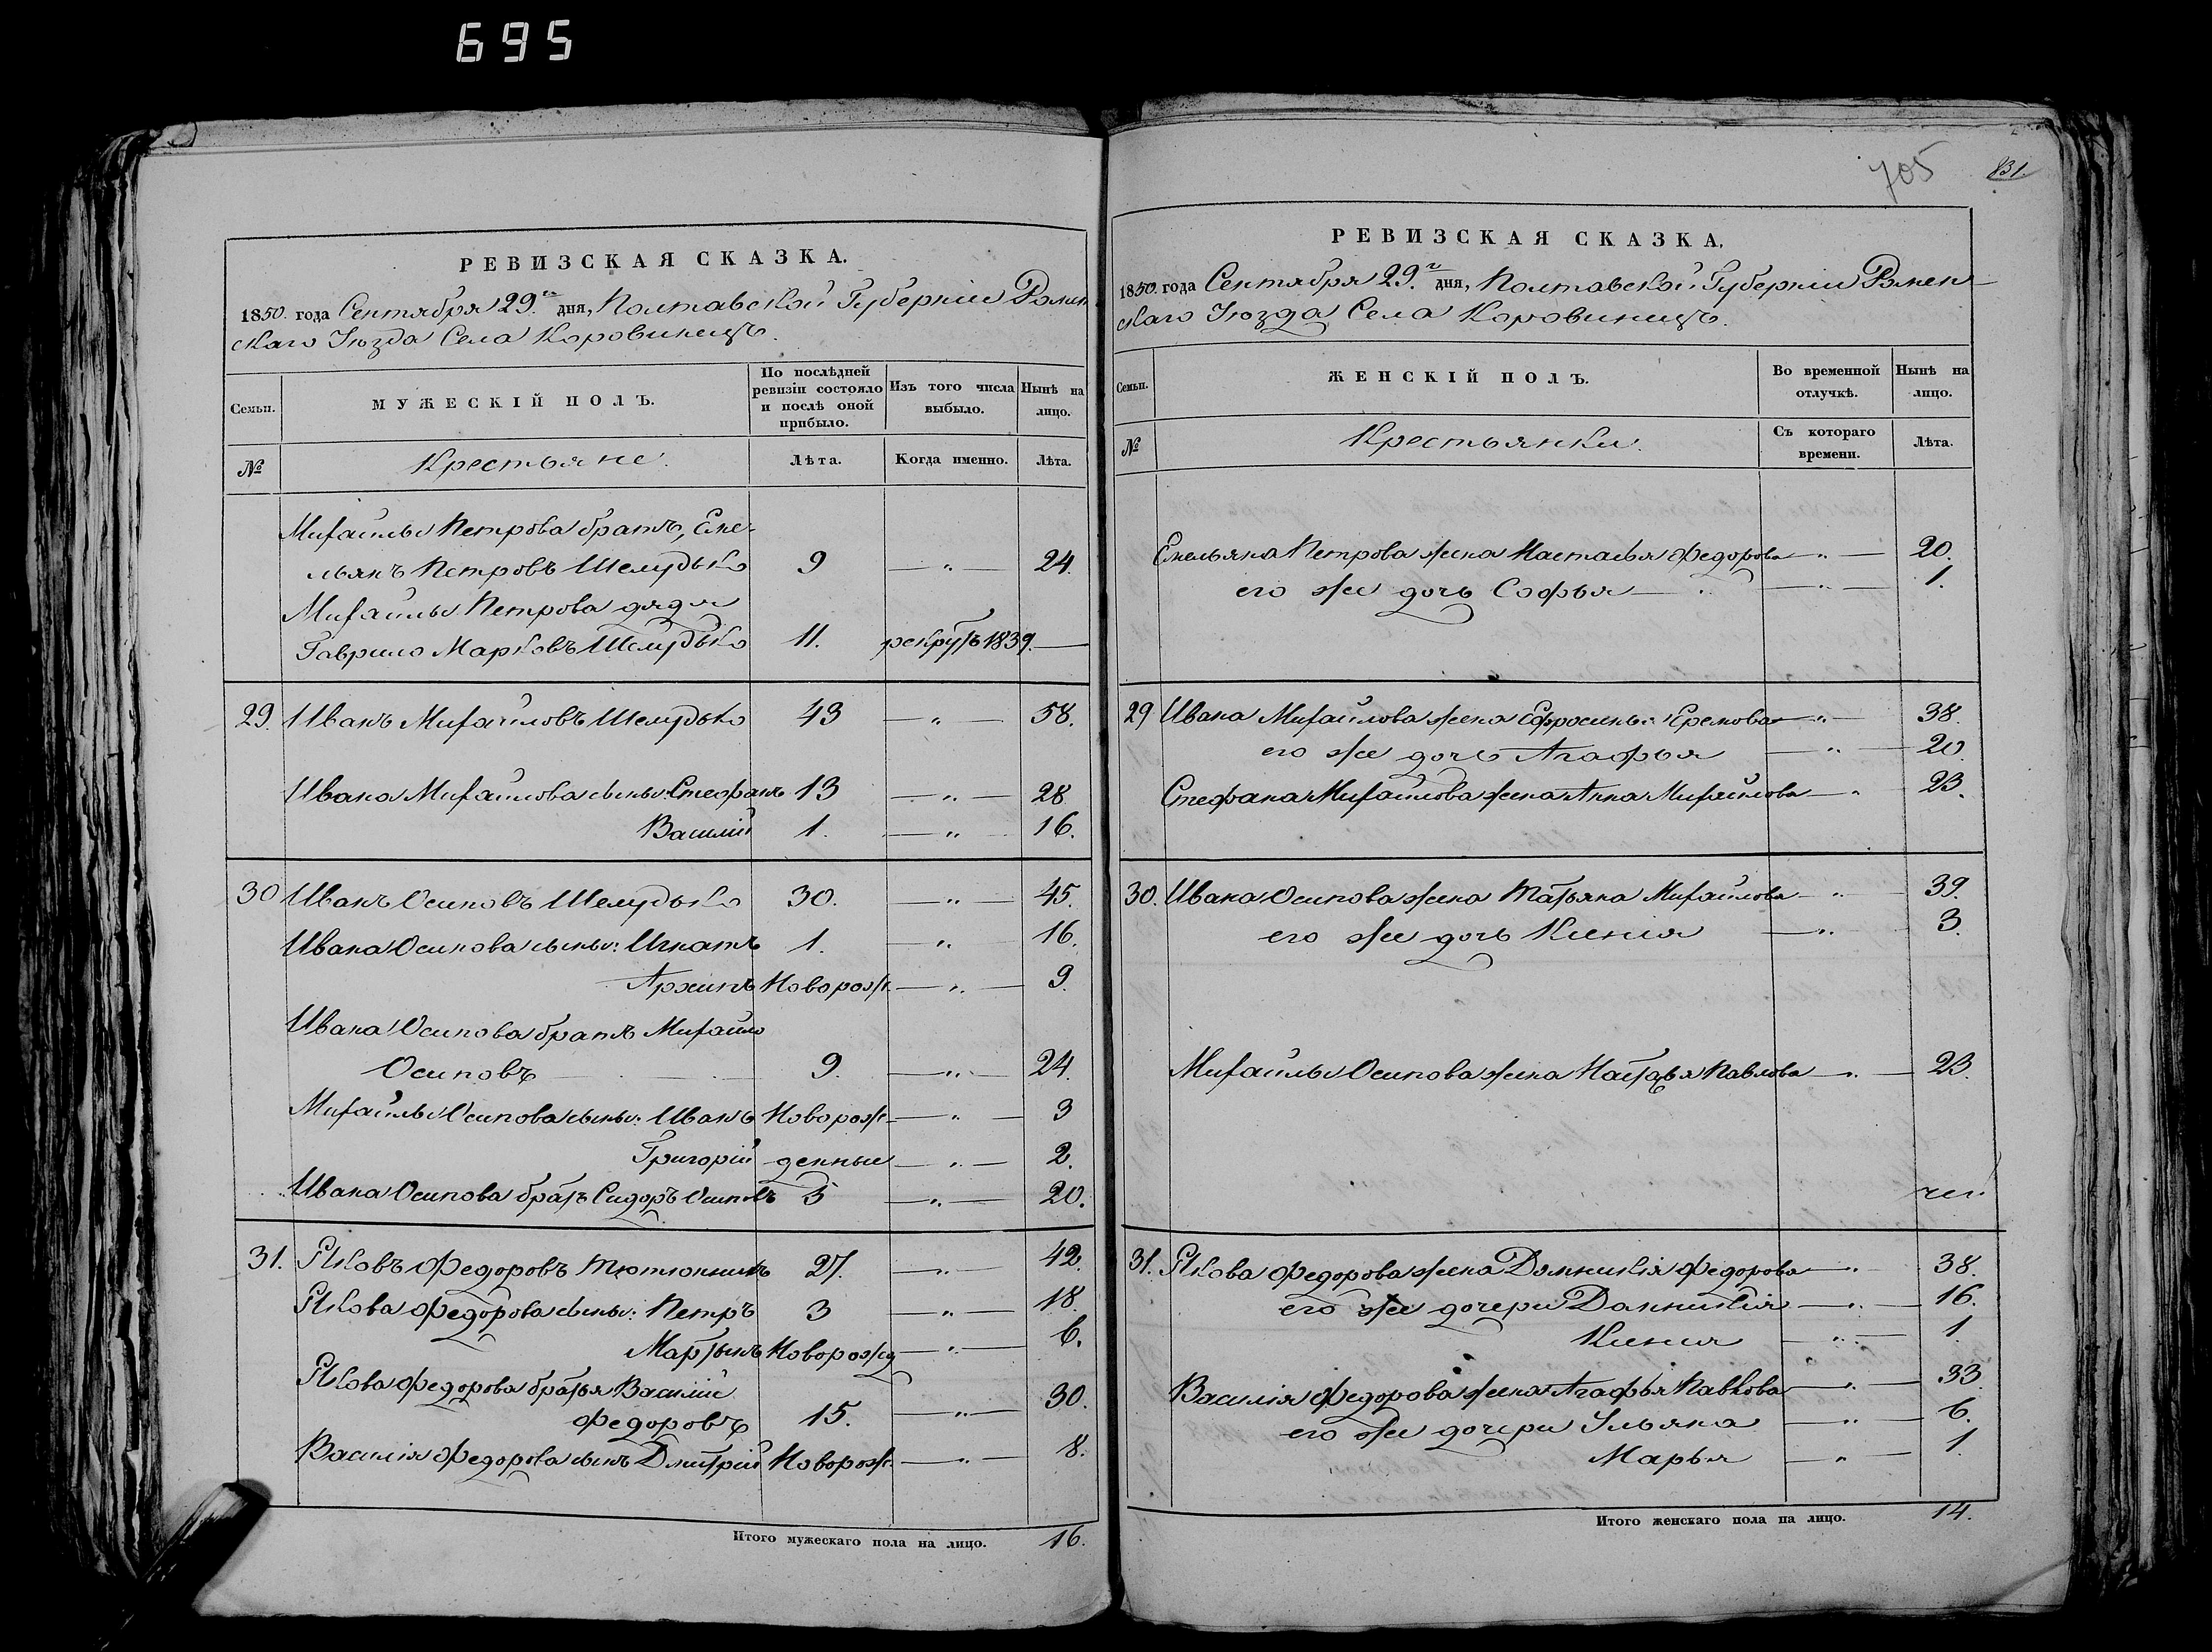 695
РЕВИЗСКАЯ СКАЗКА.
1850. года Сентября 29го дня, Полтавской Губернiи Ромен
скаго Уѣзда Села Коровинецъ.
Семьи. МУЖЕСКIЙ ПОЛЪ. По послѣдней ревизiи состояло и послѣ оной прибыло. Изъ того числа выбыло. Нынѣ на лицо.
№ Крестьяне. Лѣта. Когда именно. Лѣта.
Михайлы Петрова братъ, Еме-
льянъ Петровъ Шелудько 9 — " — 24.
Михайлы Петрова дядя
Гаврило Марковъ Шелудько 11. рекрутъ 1839. —
29. Иванъ Михайловъ Шелудько 43 — " — 58.
Ивана Михайлова сыны: Стефанъ 13 — " — 28
Василiй 1. — " — 16.
30 Иванъ Осиповъ Шелудько 30. — " — 45.
Ивана Осипова сыны: Игнатъ 1. — " — 16.
Архипъ Новорож. — " — 9.
Ивана Осипова братъ Михайло
Осиповъ 9. — " — 24.
Михайлы Осипова сыны: Иванъ Новорож- — " — 3
Григорiй денные — " — 2.
Ивана Осипова братъ Сидоръ Осиповъ 5 — " — 20.
31. Яковъ Федоровъ Тютюнникъ 27. — " — 42.
Якова Федорова сыны: Петръ 3 — " — 18.
Мартынъ Новорожд — " — 6.
Якова Федорова братья Василiй
Федоровъ 15. — " — 30.
Василiя Федорова сынъ Дмитрiй Новорож. — " — 8.
Итого мужескаго пола на лицо. 16.
705 831.
РЕВИЗСКАЯ СКАЗКА.
1850. года Сентября 29го дня, Полтавской Губернiи Ромен-
скаго Уѣзда Села Коровинецъ.
Семьи. ЖЕНСКIЙ ПОЛЪ. Во временной отлучкѣ. Нынѣ на лицо.
№ Крестьянки. Съ котораго времени. Лѣта.
Емельяна Петрова жена Настасья Федорова — " — 20.
его же дочь Софья — " — 1.
29 Ивана Михайлова жена Ефросинья Еремова — " — 38.
его же дочь Агафья — " — 20.
Стефана Михайлова жена Анна Михайлова — " 23.
30. Ивана Осипова жена Татьяна Михайлова — " — 39.
его же дочь Ксенiя — " — 3.
Михайлы Осипова жена Настасья Павлова — " — 23.
31. Якова Федорова жена Домникiя Федорова — " 38.
его же дочери Домникiя — " — 16.
Ксенiя — " — 1.
Василiя Федорова жена Агафья Павлова — " — 33.
его же дочери Ульяна — " — 6.
Марья — " — 1
Итого женскаго пола на лицо. 14.